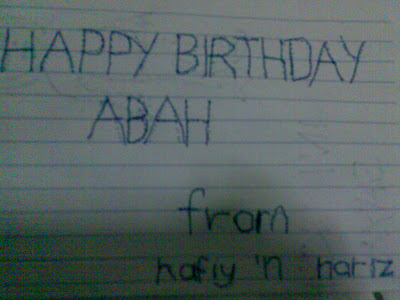 HAPPY BIRTHDAY
ABAH
from
hafiy 'n hariz